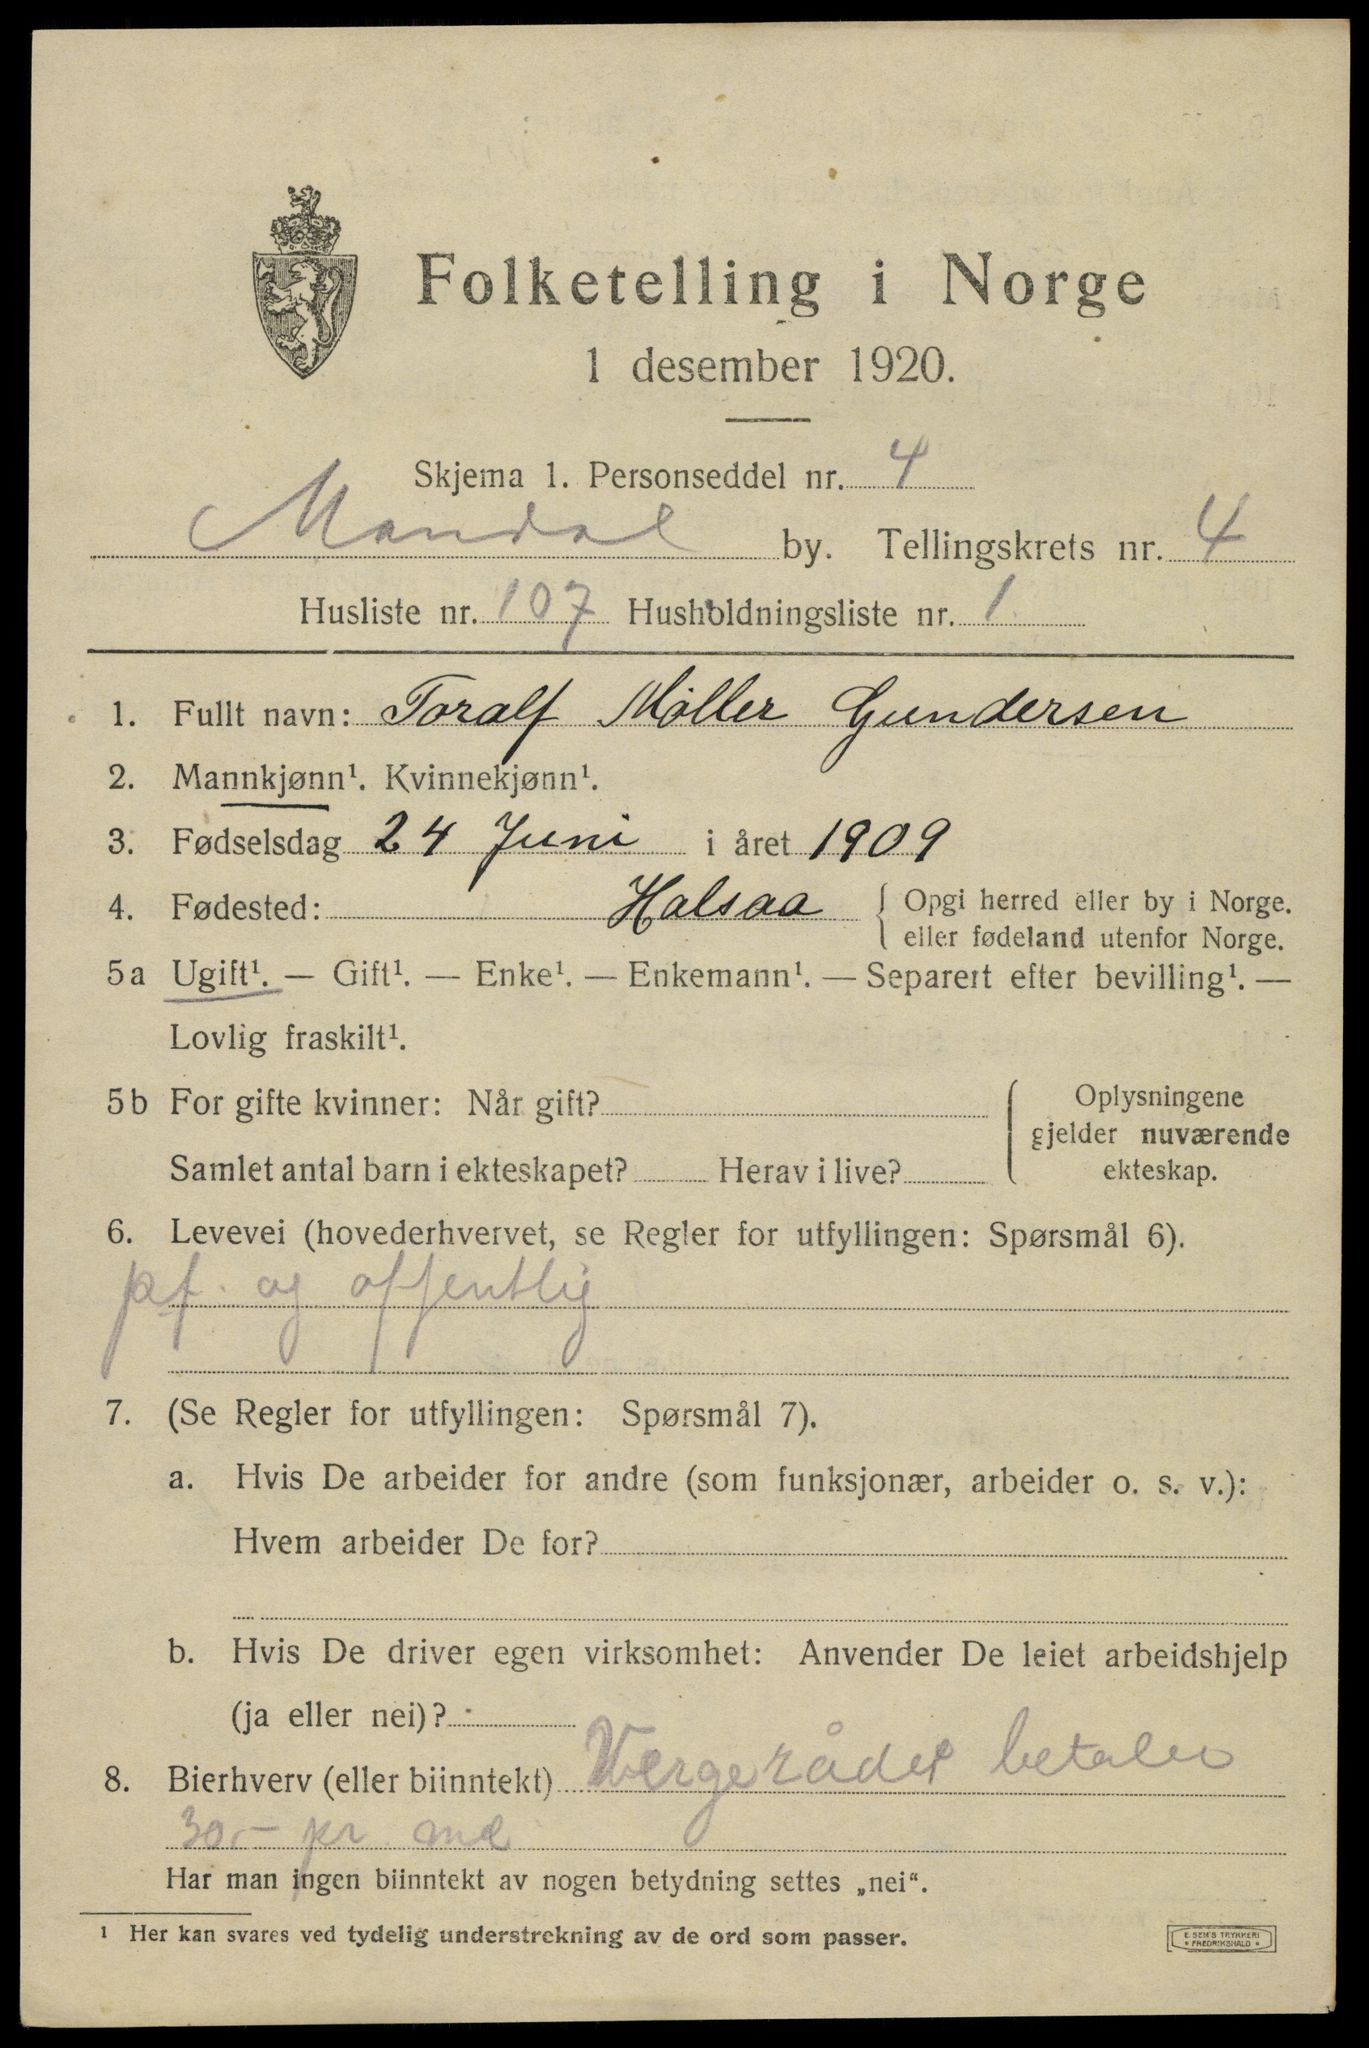 Folketelling i Norge
1 desember 1920.
Skjema 1. Personseddel nr. 4
Mandal by. Tellingskrets nr. 4
Husliste nr. 107 Husholdningsliste nr. 1
1. Fullt navn: Toralf Møller Gundersen
2. Mannkjønn¹. Kvinnekjønn¹.
3. Fødselsdag 24 Juni i året 1909
4. Fødested: Halsaa { Opgi herred eller by i Norge.
eller fødeland utenfor Norge.
5a Ugift¹. — Gift¹. — Enke¹. — Enkemann¹. — Separert efter bevilling¹. —
Lovlig fraskilt¹.
5b For gifte kvinner: Når gift? Oplysningene
gjelder nuværende
Samlet antal barn i ekteskapet? Herav i live? ekteskap.
6. Levevei (hovederhvervet, se Regler for utfyllingen: Spørsmål 6).
pf. og offentlig
7. (Se Regler for utfyllingen: Spørsmål 7).
a. Hvis De arbeider for andre (som funksjonær, arbeider o. s. v.):
Hvem arbeider De for?
b. Hvis De driver egen virksomhet: Anvender De leiet arbeidshjelp
(ja eller nei)?
8. Bierhverv (eller biinntekt) Vergerådet betaler
30.- pr. md
Har man ingen biinntekt av nogen betydning settes „nei“.
¹ Her kan svares ved tydelig understrekning av de ord som passer.
E. SEM'S TRYKKERI
• FREDRIKSHALD •